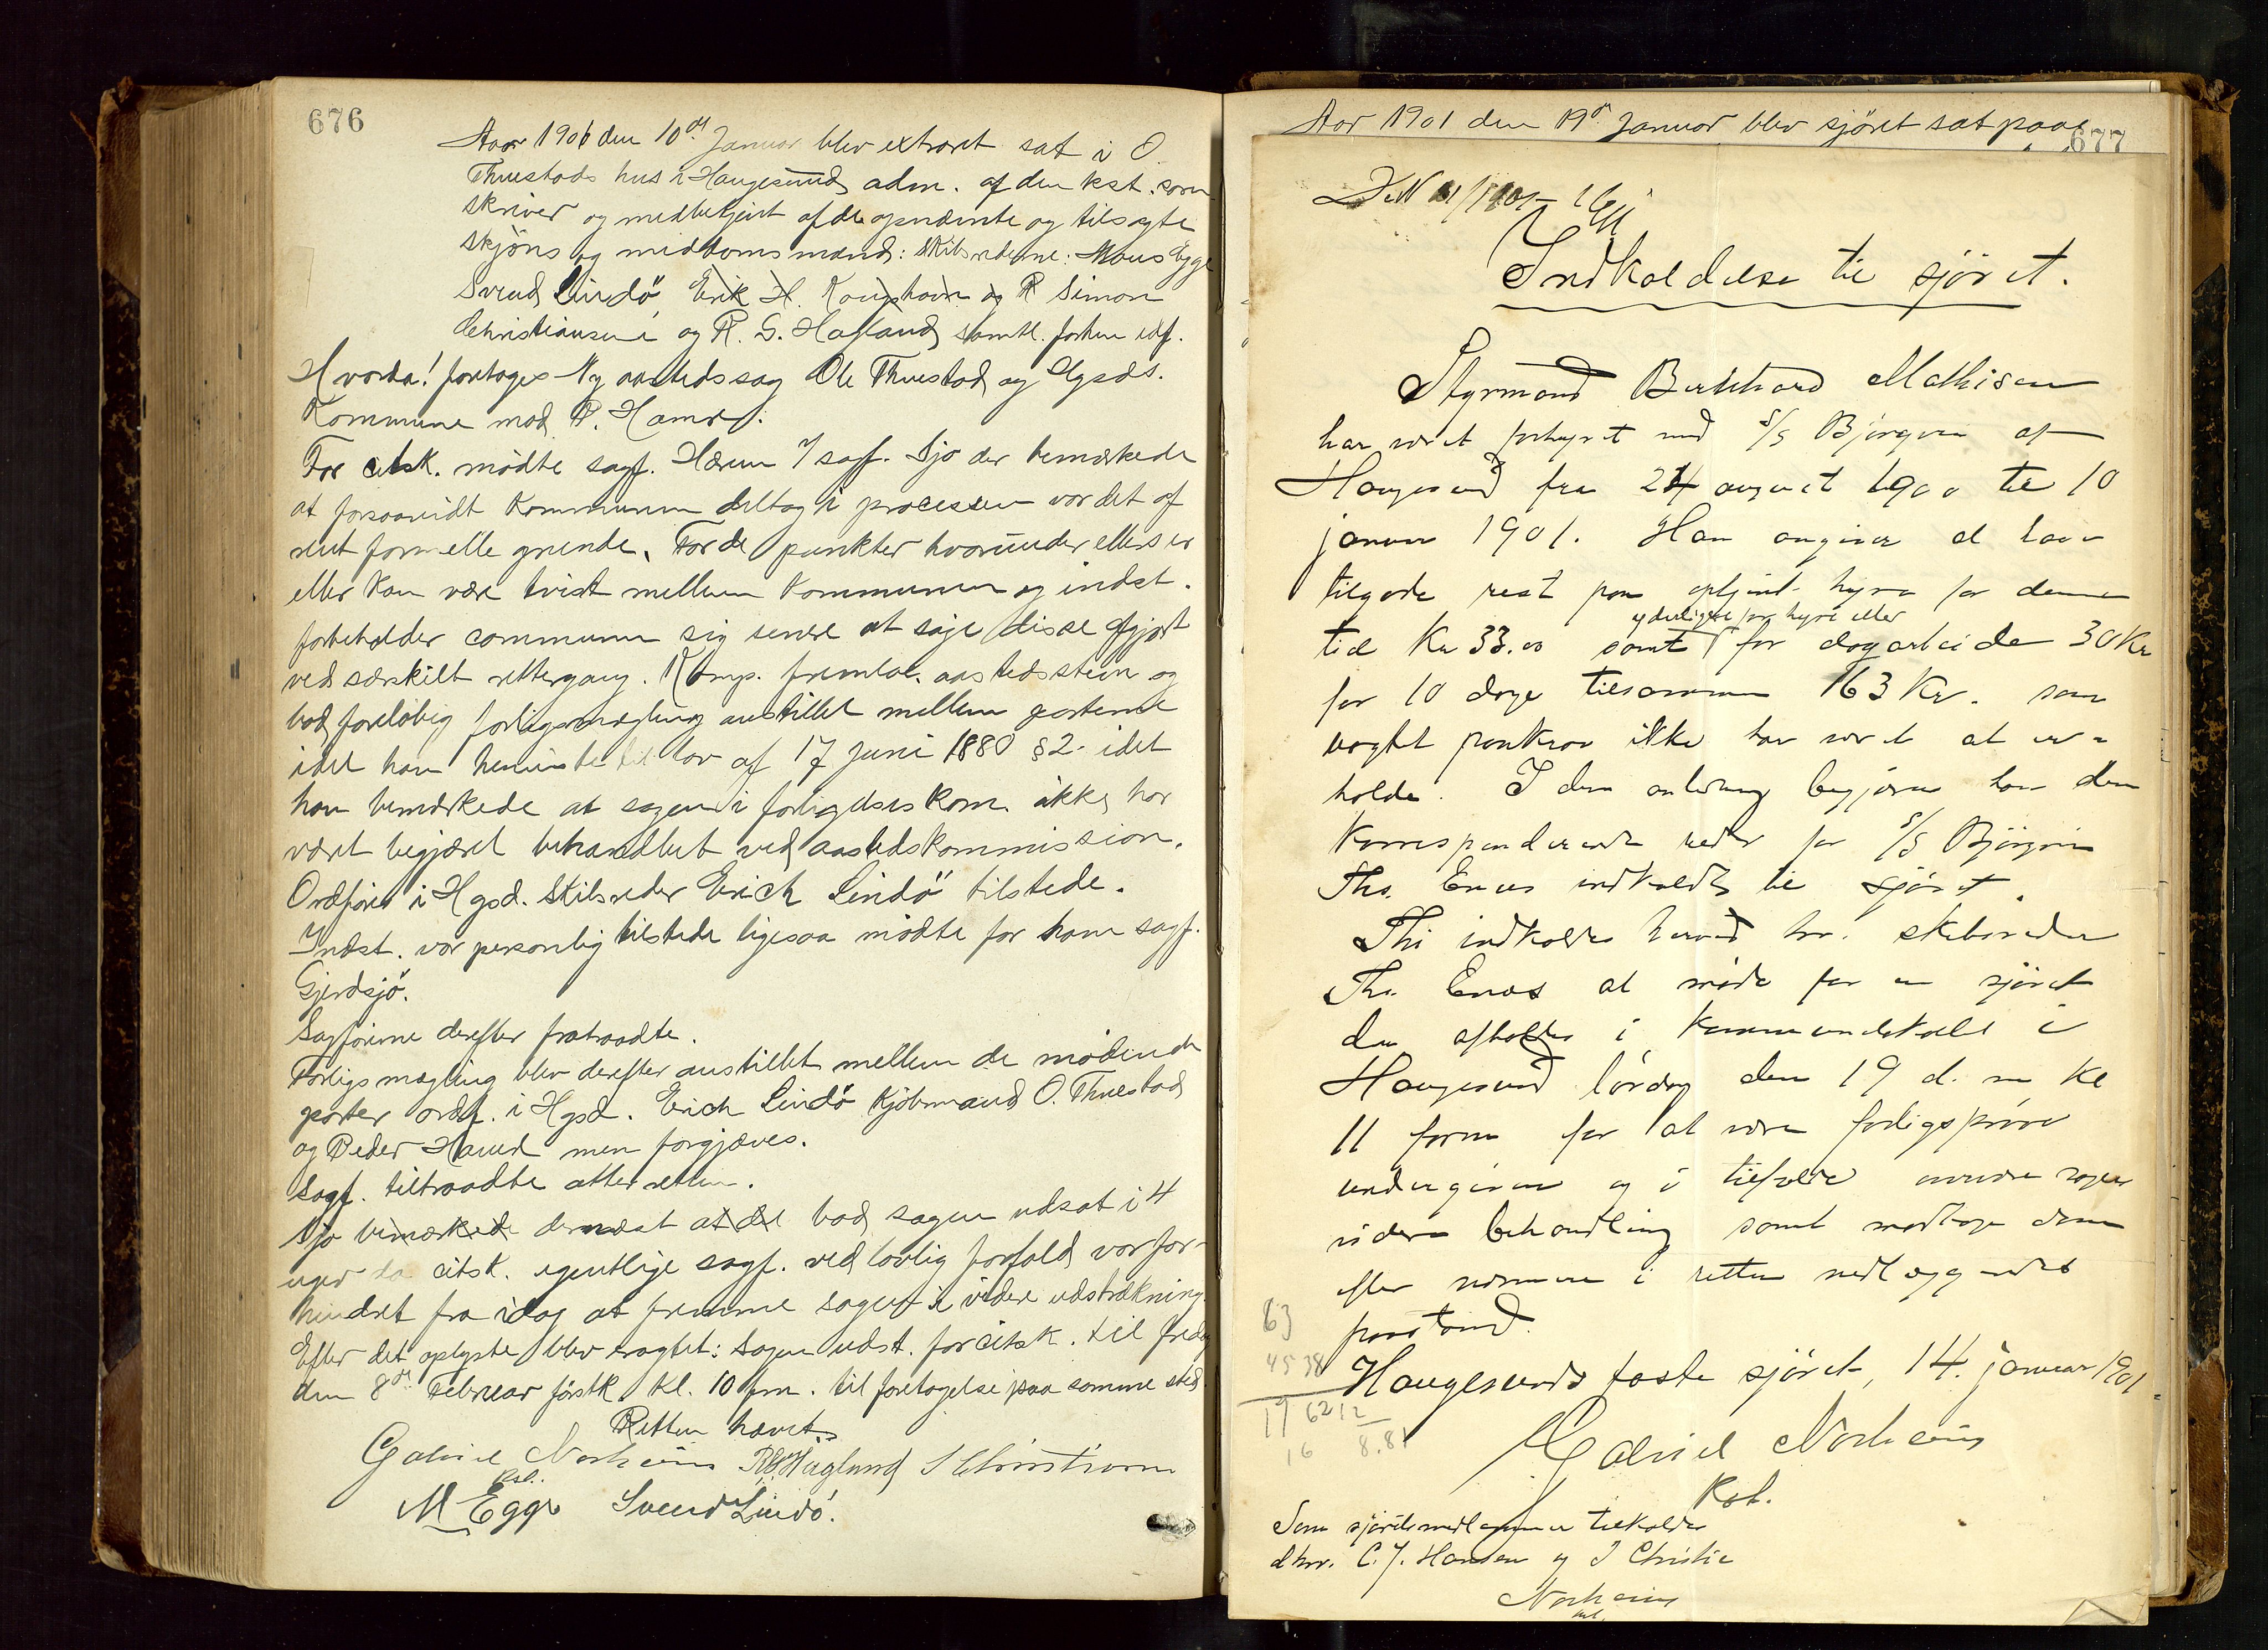 676
Aar 1901 den 10de Januar blev extraret sat i O.
Thuestads hus i Haugesund adm. af den kst. soren
skriver og medbetjent af de opnævnte og tilsagte
skjöns og meddomsmænd: Skibsrederne: Mons Egge
Svend Lindö, Erik H. Kaupshavn og R Simon
Christiansen og R. G. Hagland samtl. forhen edf.
Hvorda! foretoges Ny aastedssag Ole Thuestad og Hgsds.
Kommune mod P. Hamre:
For citsk. mödte sagf. Hærem v/ sagf. Sjo der bemærkede
at forsaavidt Kommunen deltog i processen var det af
rent formelle grunde. For de punkter hvorunder ellers er
eller kan være tvist mellem Kommunen og indst.
forbeholder communen sig senere at söge disse afgjort
ved særskilt rettergang. Komp. freml. aastedsstevn og
bad foreløbig forligsmægling anstillet mellem parterne
idet han henviste til lov af 17 juni 1880 § 2. idet
han bemærkede at sagen i forligelseskom. ikke har
været begjæret behandlet ved aastedskommission.
Ordförer i Hgsd. Skibsreder Erich Lindö tilstede.
Indst. var personlig tilstede ligesaa mödte for ham sagf.
Gjerdsjö.
Sagförerne derefter fratraadte.
Forligsmægling blev derefter anstillet mellem de mödende
parter ordf. i Hgsd. Erich Lindö Kjöbmand O. Thuestad
og Peder Hamre men forgjæves.
Sagf. tiltraadte atter retten.
Sjo bemærkede dernæst at de bad sagen udsat i 4
uger da citsk. egentlige sagf. ved lovlig forfald var for-
hindret fra idag at fremme sagen i videre udstrækning.
Efter det oplyste blev eragtet: Sagen udst. for citsk. til fredag
den 8de Februar förstk. kl. 10 fm. til foretagelse paa samme sted.
Retten hævet.
Gabriel Norheim R G Hagland S Christiansen
kst.
M Egge Svend Lindö.
Aar 1901 den 19de Januar blev sjöret sat paa
677
Indkaldelse til sjöret.
Styrmand Bernhard Mathisen
har været forhyret med S/S Björgvin af
Haugesund fra 24 august 1900 til 10
januar 1901. Han angiver at have
tilgode rest paa optjent hyre for denne
yderligere for hyre eller
tid Kr 33.00 samt for dagarbeide 30 Kr
for 10 dage tilsammen 163 Kr. som
uagtet paakrav ikke har været at er-
holde. I den anledning begjærer han den
Korresponderende reder for S/S Björgvin
Ths. Enes indkaldt til sjöret.
Thi indkaldes herved hr. skibsreder
Ths. Enes at möde for en sjöret
der afholdes i Kommunelokalet i
Haugesund lördag den 19 d. m kl
11 form for at være forligspröve
undergiven og i tilfælde avvente sagens
videre behandling samt modtage dom
efter nærmere i retten nedlæggende
paastand.
Haugesunds faste sjöret, 14. januar 1901.
Gabriel Norheim
Kst.
63
45 38
19 62 12
16 8.81
Som sjöretsmedlemmer tilkaldes
dhrr. C. J. Hansen og J Christie
Norheim
kst.